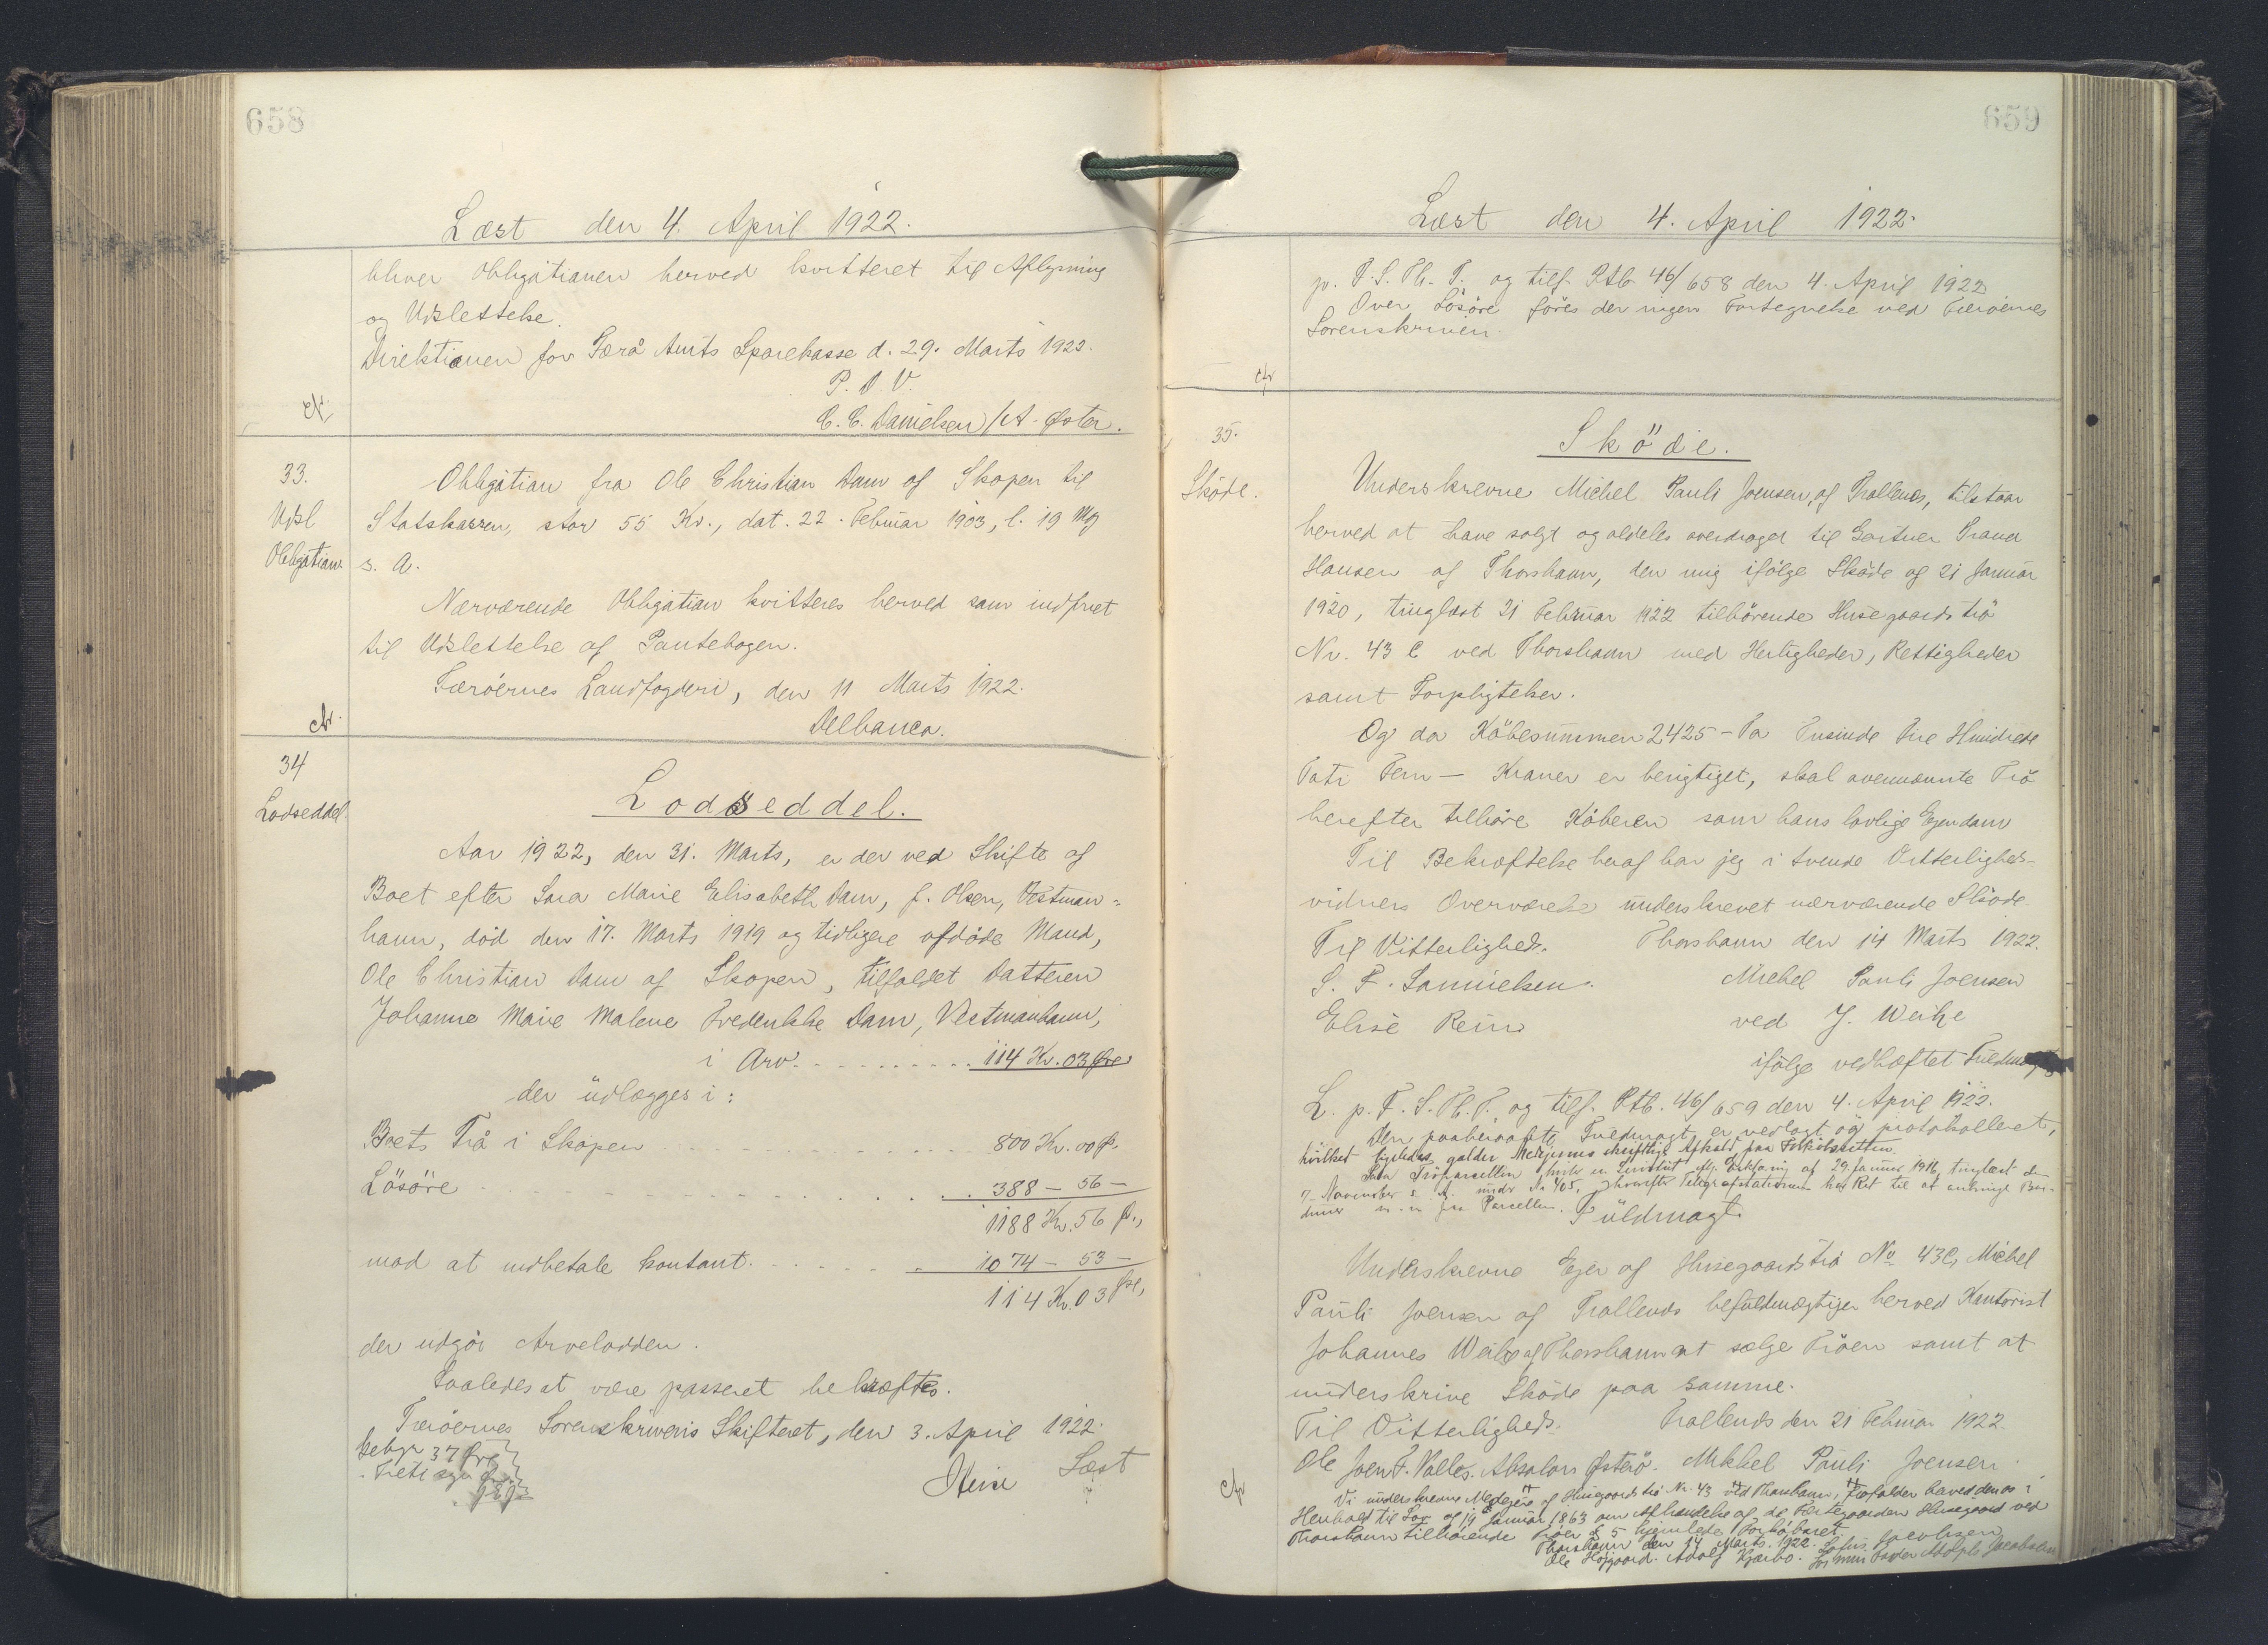 658
Læst den 4. April 1922.
bliver Obligationen herved kvitteret til Aflysning
og Udslettelse.
Direktionen for Færø Amts Sparekasse d. 29. Marts 1922.
P. D V.
C. C. Danielsen / A. Øster.
33.
Udsl
Obligation.
Obligation fra Ole Christian Dam af Skopen til
Statskassen, stor 55 Kr., dat. 22. Februar 1903, l. 19 Maj
s. A.
Nærværende Obligation kvitteres herved som indfriet
til Udslettelse af Pantebogen.
Færöernes Landfogderi, den 11 Marts 1922.
Delbanco.
34
Lodseddel.
Lodseddel.
Aar 1922, den 31. Marts, er der ved Skifte af
Boet efter Sara Marie Elisabeth Dam, f. Olsen, Vestman-
havn, död den 17. Marts 1919 og tidligere afdöde Mand,
Ole Christian Dam af Skopen, tilfaldet Datteren
Johanne Marie Malene Fredrikke Dam, Vestmanhavn,
i Arv. . . . . . . . . . . 114 Kr. 03 Øre
der udlægges i:
Boets Trö i Skopen . . . . . . . . . 800 Kr. 00 Ø.
Lösöre . . . . . . . . . . . 388 — 56 —
1188 Kr. 56 Ø.,
mod at indbetale kontant. . . . . . . 1074 — 53 —
114 Kr. 03 Øre,
der udgör Arvelodden.
Saaledes at være passeret bekræftes.
Færöernes Sorenskriveris Skifteret, den 3. April 1922.
Gebyr 37 Øre
Heise
Læst
659
Læst den 4. April 1922.
p. F. S. Th. T. og tilf. Ptb. 46/658 den 4. April 1922
Over Lösöre föres der ingen Fortegnelse ved Færöernes
Sorenskriveri.
35.
Sköde.
Sköde.
Underskrevne Michel Pauli Joensen, af Trallenes, tilstaar
herved at have solgt og aldeles overdraget til Gartner Trand
Hansen af Thorshavn, den mig ifölge Sköde af 21 Januar
1920, tinglæst 21 Februar 1922 tilhörende Husegaards trö
Nr. 43 C ved Thorshavn med Herligheder, Rettigheder
samt Forpligtelser.
Og da Köbesummen 2425 — To Tusinde Fire Hundrede
Tati Fem — Kroner er berigtiget, skal ovennævnte Trö
herefter tilhöre Köberen som hans lovlige Ejendom
Til Bekræftelse heraf har jeg i tvende Vitterligheds-
vidners Overværelse underskrevet nærværende Sköde.
Til Vitterlighed. Thorshavn den 14 Marts 1922.
S. F. Samuelsen. Michel Pauli Joensen
Elise Rein ved J. Weihe
ifölge vedhæftet Fuldmagt
L. p. F. S. Th. T. og tilf. Ptb. 46/659 den 4. April 1922.
Den paaberaabte Fuldmagt er vedlagt og protokolleret,
hvilket ligeledes gælder Medejernes skriftlige Afkald paa Forköbsretten.
Paa Tröparcellen hviler en Servitut iflg. Erklæring af 29. Januar 1916, tinglæst den
7. November s. A. under No 405, hvorefter Telegrafstationen har Ret til at anbringe Bar-
duner m. m. paa Parcellen.
Fuldmagt.
Underskrevne Ejer af Husegaards trö No 43 C, Michel
Pauli Joensen af Trallenes befuldmægtiger herved Kontorist
Johannes Weihe af Thorshavn at sælge Tröen samt at
underskrive Sköde paa samme.
Til Vitterlighed. Trallenes den 21 Februar 1922.
Ole Joen F. Valles. Absalon Østerö. Mikkel Pauli Joensen.
Vi underskrevne Medejere af Husegaards trö Nr. 43 ved Thorshavn, frafalder herved den os i
Henhold til Lov af 19 Januar 1863 om Afhændelse af de Fæstegaarden Husegaard ved
Thorshavn tilhörende Tröer § 5 hjemlede Forköbsret.
Thorshavn den 14 Marts. 1922. Sofus Jacobsen
Ole Höjgaard. Adolf Kjærbo. for min Fader Adolph Jacobsen